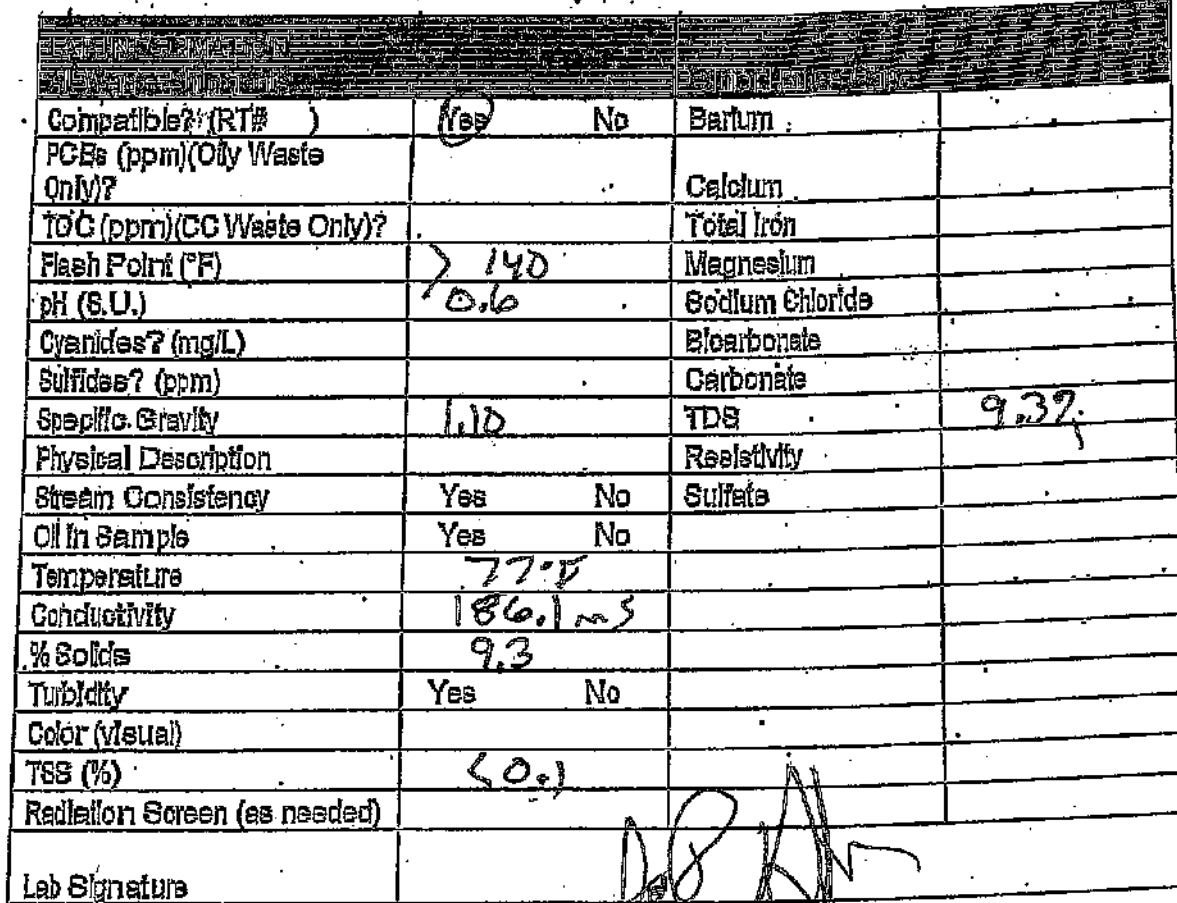 LAB INFORMATION
Compatible? (RT# ) Yes No Barium
PCBs (ppm)(Oily Waste
Only)? Calcium
TOC (ppm)(CC Waste Only)? Total Iron
Flash Point (°F) > 140 Magnesium
pH (S.U.) 0.6 Sodium Chloride
Cyanides? (mg/L) Bicarbonate
Sulfides? (ppm) Carbonate
Specific Gravity 1.10 TDS 9.3%
Physical Description Resistivity
Stream Consistency Yes No Sulfate
Oil In Sample Yes No
Temperature 77°F
Conductivity 186.1 mS
% Solids 9.3
Turbidity Yes No
Color (visual)
TSS (%) <0.1
Radiation Screen (as needed)
Lab Signature